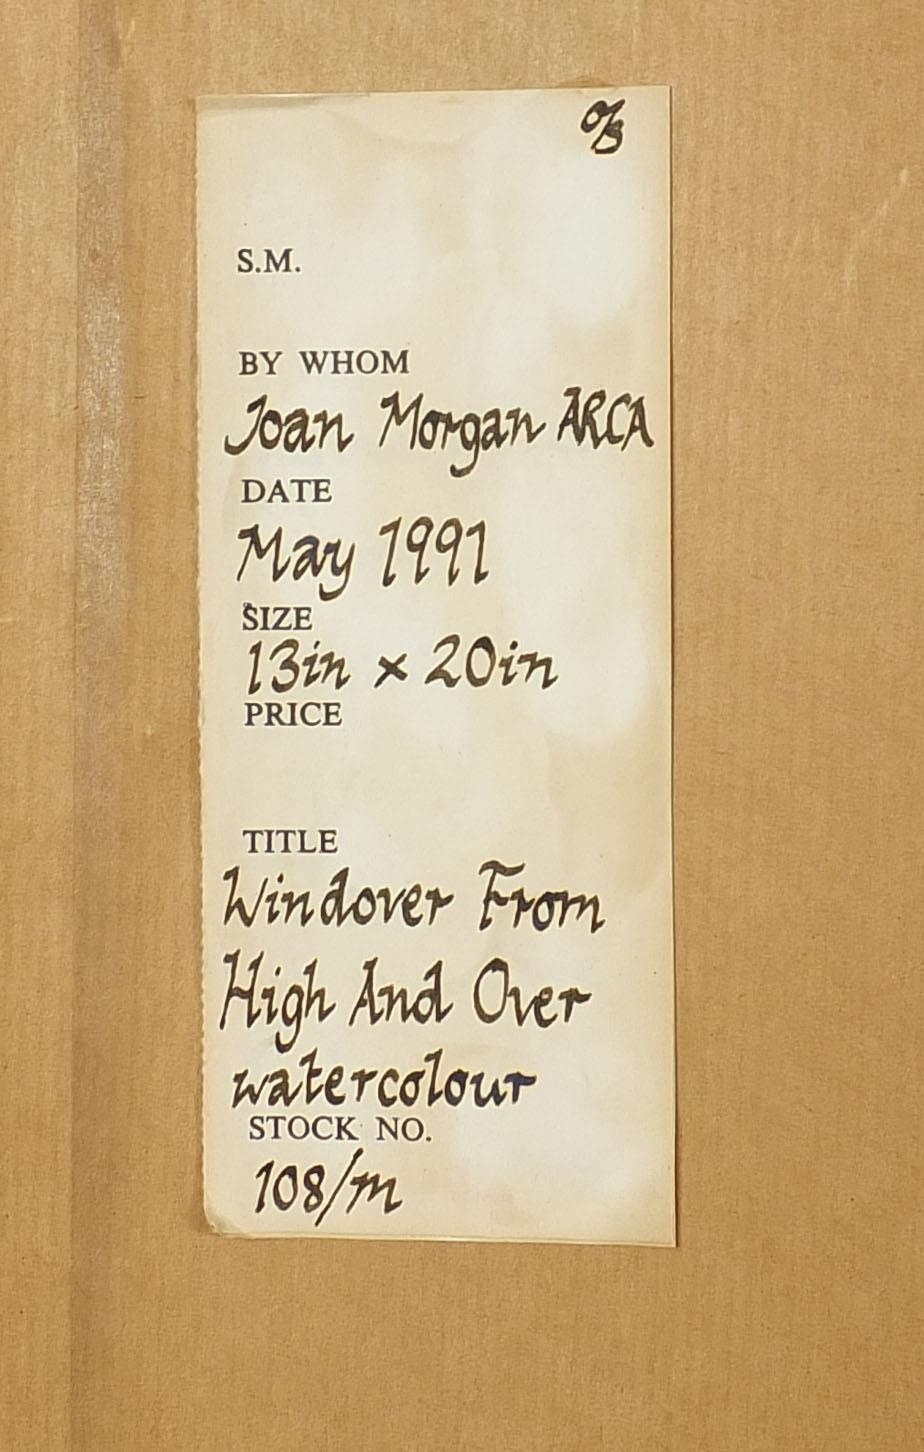 S.M.
BY WHOM
Joan Morgan ARCA
DATE
May 1991
SIZE
13in x 20in
PRICE
TITLE
Windover From
High And Over
watercolour
STOCK NO.
108/m